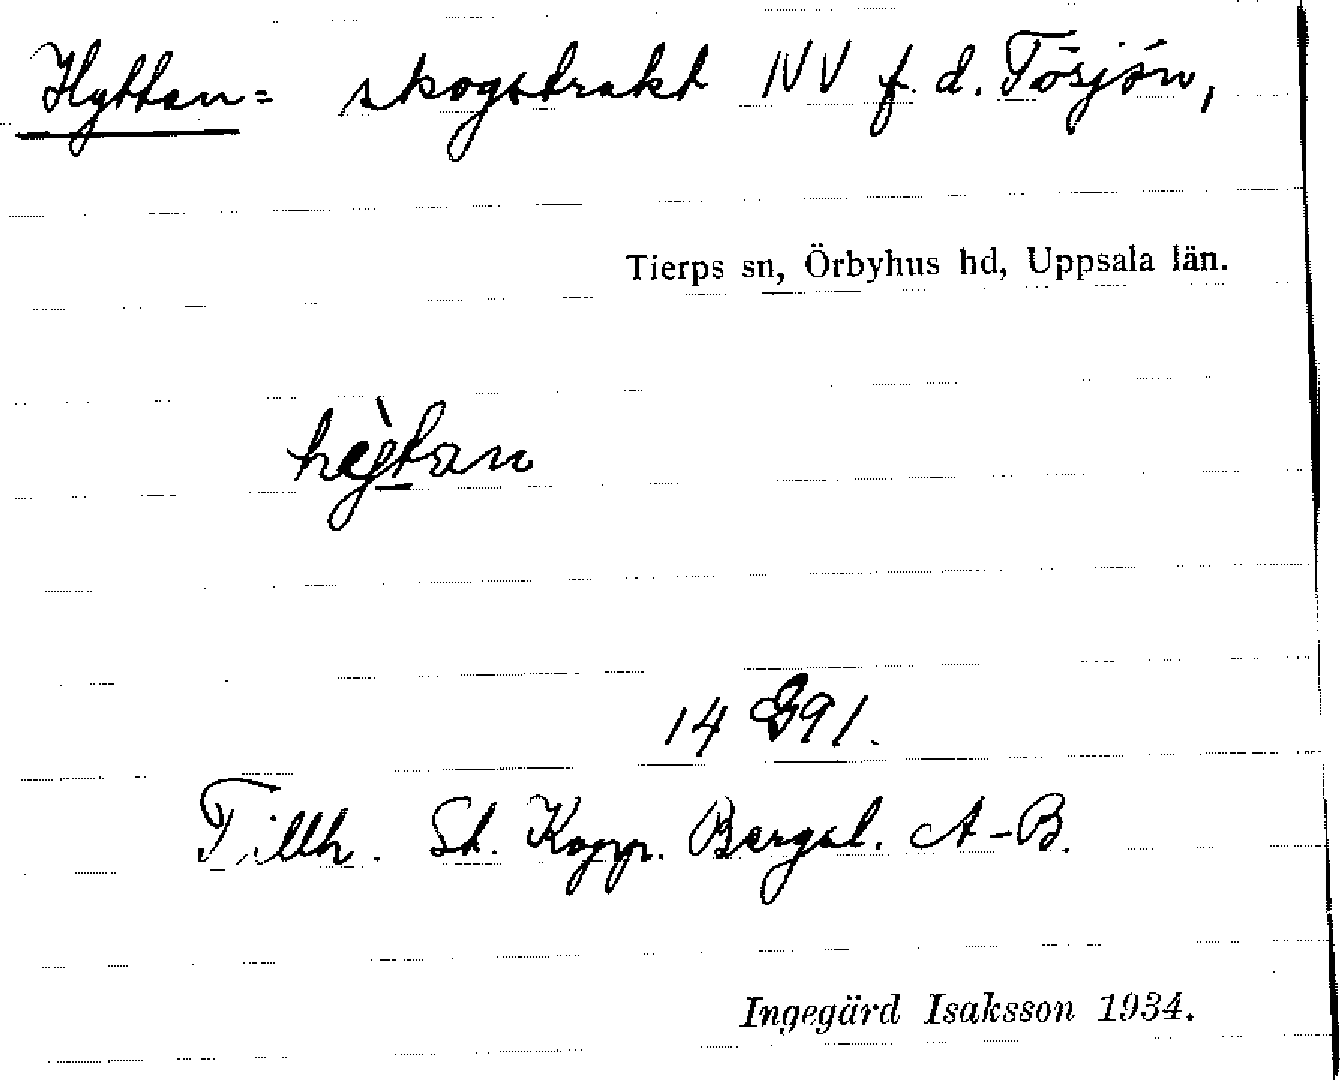 Hyttan = skogstrakt NV f. d. Tösjön,
Tierps sn, Örbyhus hd, Uppsala län.
hỳtan
14 G91.
Tillh. St. Kopp. Bergsl. A-B.
Ingegärd Isaksson 1934.